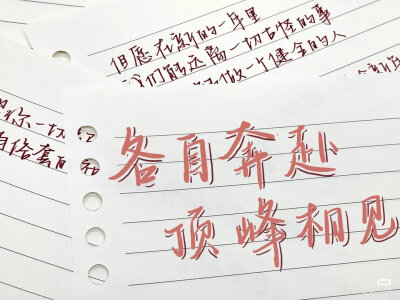 但愿在新的一年里
我们能远离一切古怪的事
做一个健全的人
你一切
俗套的
各自奔赴
顶峰相见